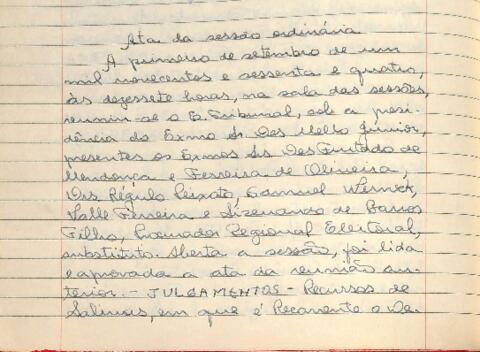 Ata da sessão ordinária
A primeiro de setembro de um
mil novecentos e sessenta e quatro,
às dezessete horas, na sala das sessões,
reuniu-se o E. Tribunal, sob a presi-
dência do Exmo Sr. Des Mello Júnior,
presentes os Exmos Srs Des Furtado de
Mendonça e Ferreira de Oliveira,
Drs. Régulo Peixoto, Samuel Werneck,
Valle Ferreira e Sizenando de Barros
Filho, Procurador Regional Eleitoral,
substituto. Aberta a sessão, foi lida
e aprovada a ata da reunião an-
terior. - JULGAMENTOS - Recursos de
Salinas, em que é Recorrente o De-